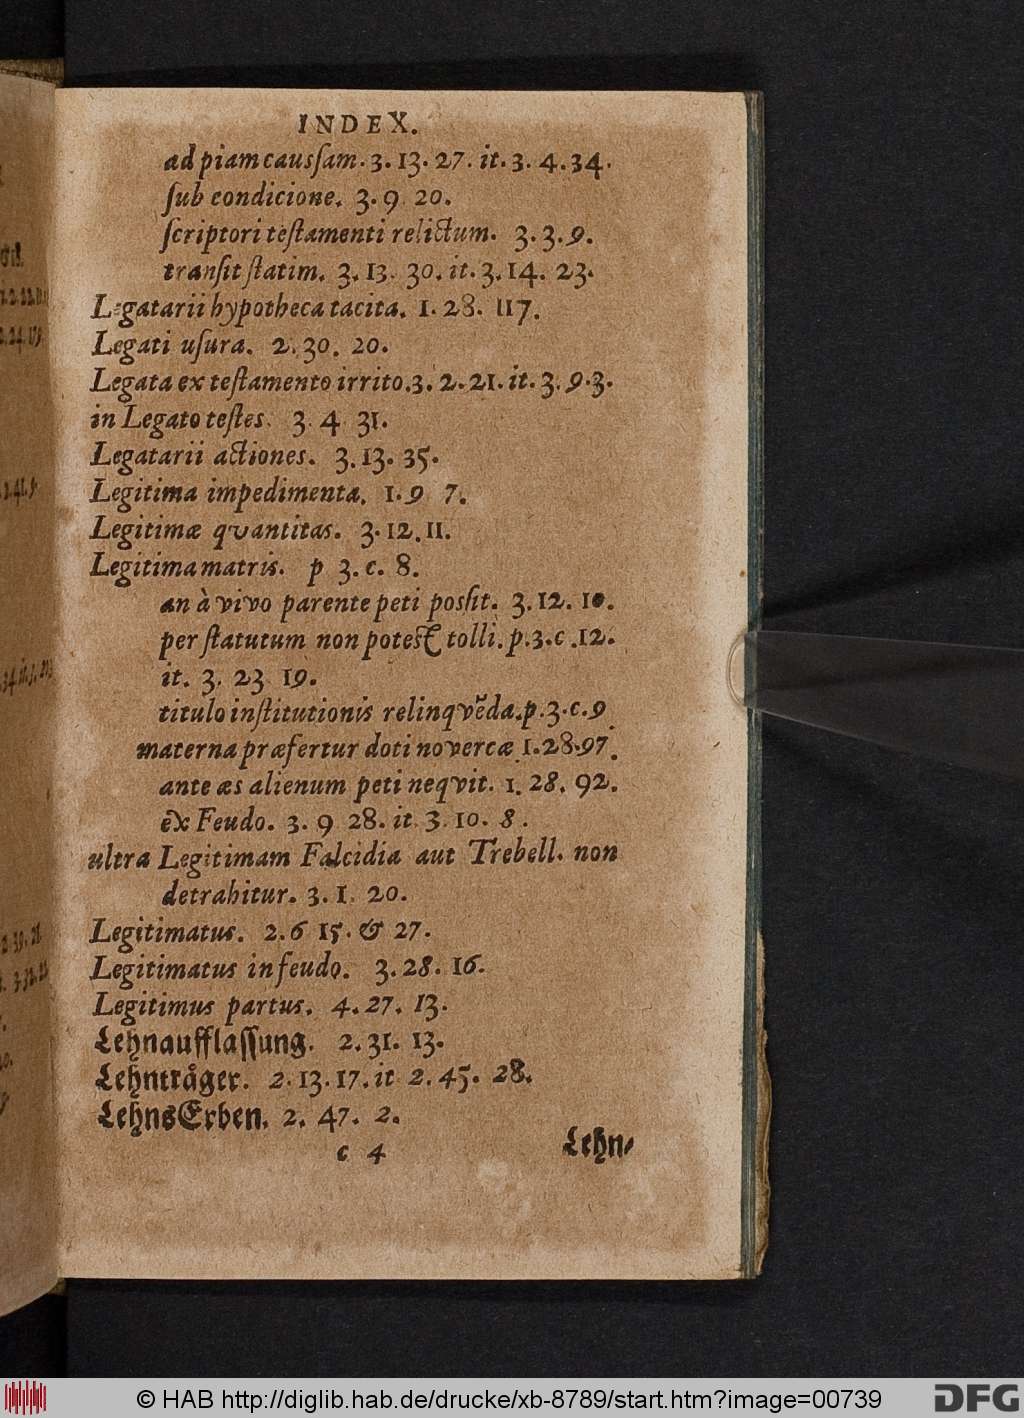 INDEX.
ad piam causſam. 3. 13. 27. it. 3. 4. 34.
ſub condicione. 3. 9 20.
ſcriptori teſtamenti relictum. 3. 3. 9.
tranſit ſtatim. 3. 13. 30. it. 3. 14. 23.
Legatarii hypotheca tacita. 1. 28. 117.
Legati uſura. 2. 30. 20.
Legata ex teſtamento irrito. 3. 2. 21. it. 3. 9. 3.
in Legato teſtes. 3. 4 31.
Legatarii actiones. 3. 13. 35.
Legitima impedimenta. 1. 9 7.
Legitimæ quantitas. 3. 12. 11.
Legitima matris. p 3. c. 8.
an à vivo parente peti poſsit. 3. 12. 10.
per ſtatutum non potest tolli. p. 3. c. 12.
it. 3. 23 19.
titulo inſtitutionis relinqvẽda. p. 3. c. 9
materna præfertur doti novercæ 1. 28. 97.
ante æs alienum peti neqvit. 1. 28. 92.
ex Feudo. 3. 9 28. it. 3. 10. 8.
ultra Legitimam Falcidia aut Trebell. non
detrahitur. 3. 1. 20.
Legitimatus. 2. 6 15. & 27.
Legitimatus in feudo. 3. 28. 16.
Legitimus partus. 4. 27. 13.
Lehnaufflaſſung. 2. 31. 13.
Lehnträger. 2. 13. 17. it 2. 45. 28.
LehnsErben. 2. 47. 2.
c 4 Lehn-
© HAB http://diglib.hab.de/drucke/xb-8789/start.htm?image=00739
DFG